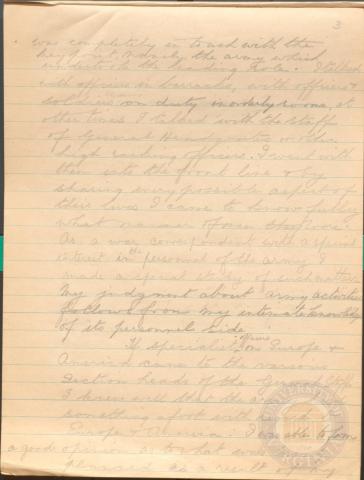 3
was completely in touch with the
key point. Namely the army which
undertook the leading role. I talked
with officers in barracks, with officers &
soldiers on duty in orderly rooms, at
other times I talked with the staff
of General Headquarters or other
high ranking officers. I went with
them into the front line & by
sharing every possible aspect of
their lives I came to know fully
what manner of men they were.
As a war correspondent with a special
interest in the personnel of the army I
made a special study of such matters
My judgment about army activities
follows from my intimate knowledge
of its personnel side.
specialist News on Europe &
America came to the various
Section heads of the General
I knew well that the
something afoot with
Europe & America. I was able to form
a good opinion as to what was
planned as a result of my